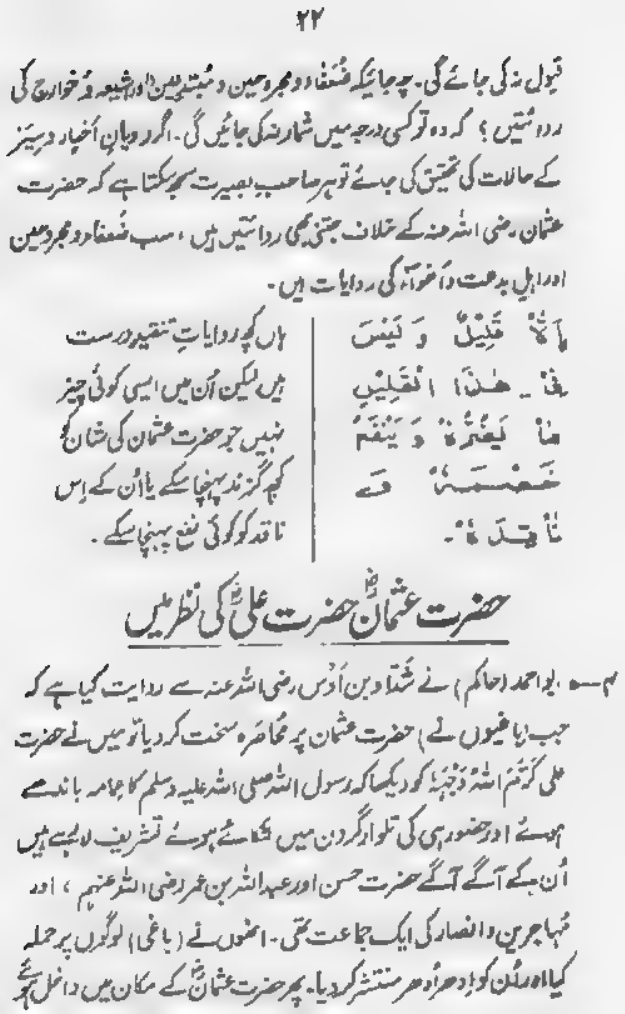 ۲۲
قبول نہ کی جائے گی۔ چہ جائیکہ ضُعَفاء و مجروحین و مُبتدِعین اور شیعہ و خوارج کی
روائتیں؟ کہ وہ تو کسی درجہ میں شمار نہ کی جائیں گی۔ اگر رویانِ اَخبار و سِیَر
کے حالات کی تحقیق کی جائے تو ہر صاحبِ بصیرت سمجھ سکتا ہے کہ حضرت
عثمان رضی اللہ عنہ کے خلاف جتنی بھی روائتیں ہیں، سب ضُعفاء و مجروحین
اور اہلِ بدعت و اَھواء کی روایات ہیں۔
اِلَّا قَلِیْلٌ وَ لَیْسَ
فِیْ ھٰذَا الْقَلِیْلِ
مَا یَضُرُّہٗ وَ یَنْفَعُ
خَصْمَہٗ وَ
نَاقِدَہٗ۔
ہاں کچھ روایاتِ تنقید درست
ہیں لیکن اُن میں ایسی کوئی چیز
نہیں جو حضرت عثمان کی شان کو
کچھ گزند پہنچا سکے یا اُن کے اِس
ناقد کو کوئی نفع پہنچا سکے۔
حضرت عثمانؓ حضرت علیؓ کی نظر میں
۴— ابو احمد (حاکم) نے شَدّاد بن اَوْس رضی اللہ عنہ سے روایت کیا ہے کہ
جب (باغیوں نے) حضرت عثمان پر محُاصَرہ سخت کر دیا تو میں نے حضرت
علی کَرَّمَ اللہُ وَجْہَہٗ کو دیکھا کہ رسول اللہ صلی اللہ علیہ وسلم کا عمامہ باندھے
ہوئے اور حضور ہی کی تلوار گردن میں لٹکائے ہوئے تشریف لا رہے ہیں
اُن کے آگے آگے حضرت حسن اور عبداللہ بن عمر رضی اللہ عنہم، اور
مُہاجرین و انصار کی ایک جماعت تھی۔ انھوں نے (باغی) لوگوں پر حملہ
کیا اور اُن کو اِدھر اُدھر منتشر کر دیا۔ پھر حضرت عثمانؓ کے مکان میں داخل ہوئے